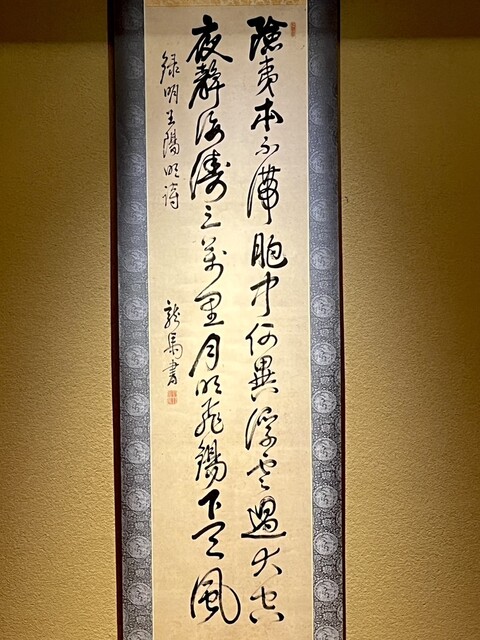 險夷本不滞胸中何異浮雲過大空
夜静海濤三萬里月明飛錫下天風
録明王陽明詩
龍馬書